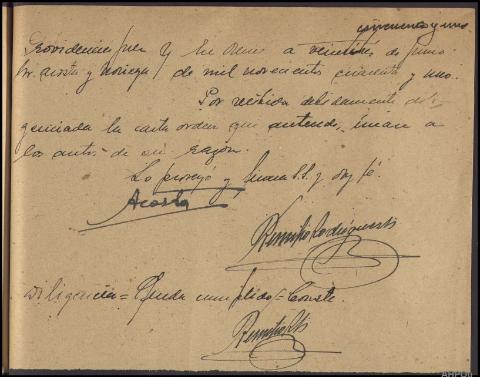 cincuenta y uno.
Providencia Juez Y En Orense a veintitres de Junio
Sr. Acosta y Noriega de mil novecientos cincuenta y uno.
Por recibida debidamente dili-
genciada la carta orden que antecede, únase a
los autos de su razón.
Lo proveyó y firma S.S. y doy fé.
Acosta
Diligencia = Queda cumplido = Conste.
AHPOU